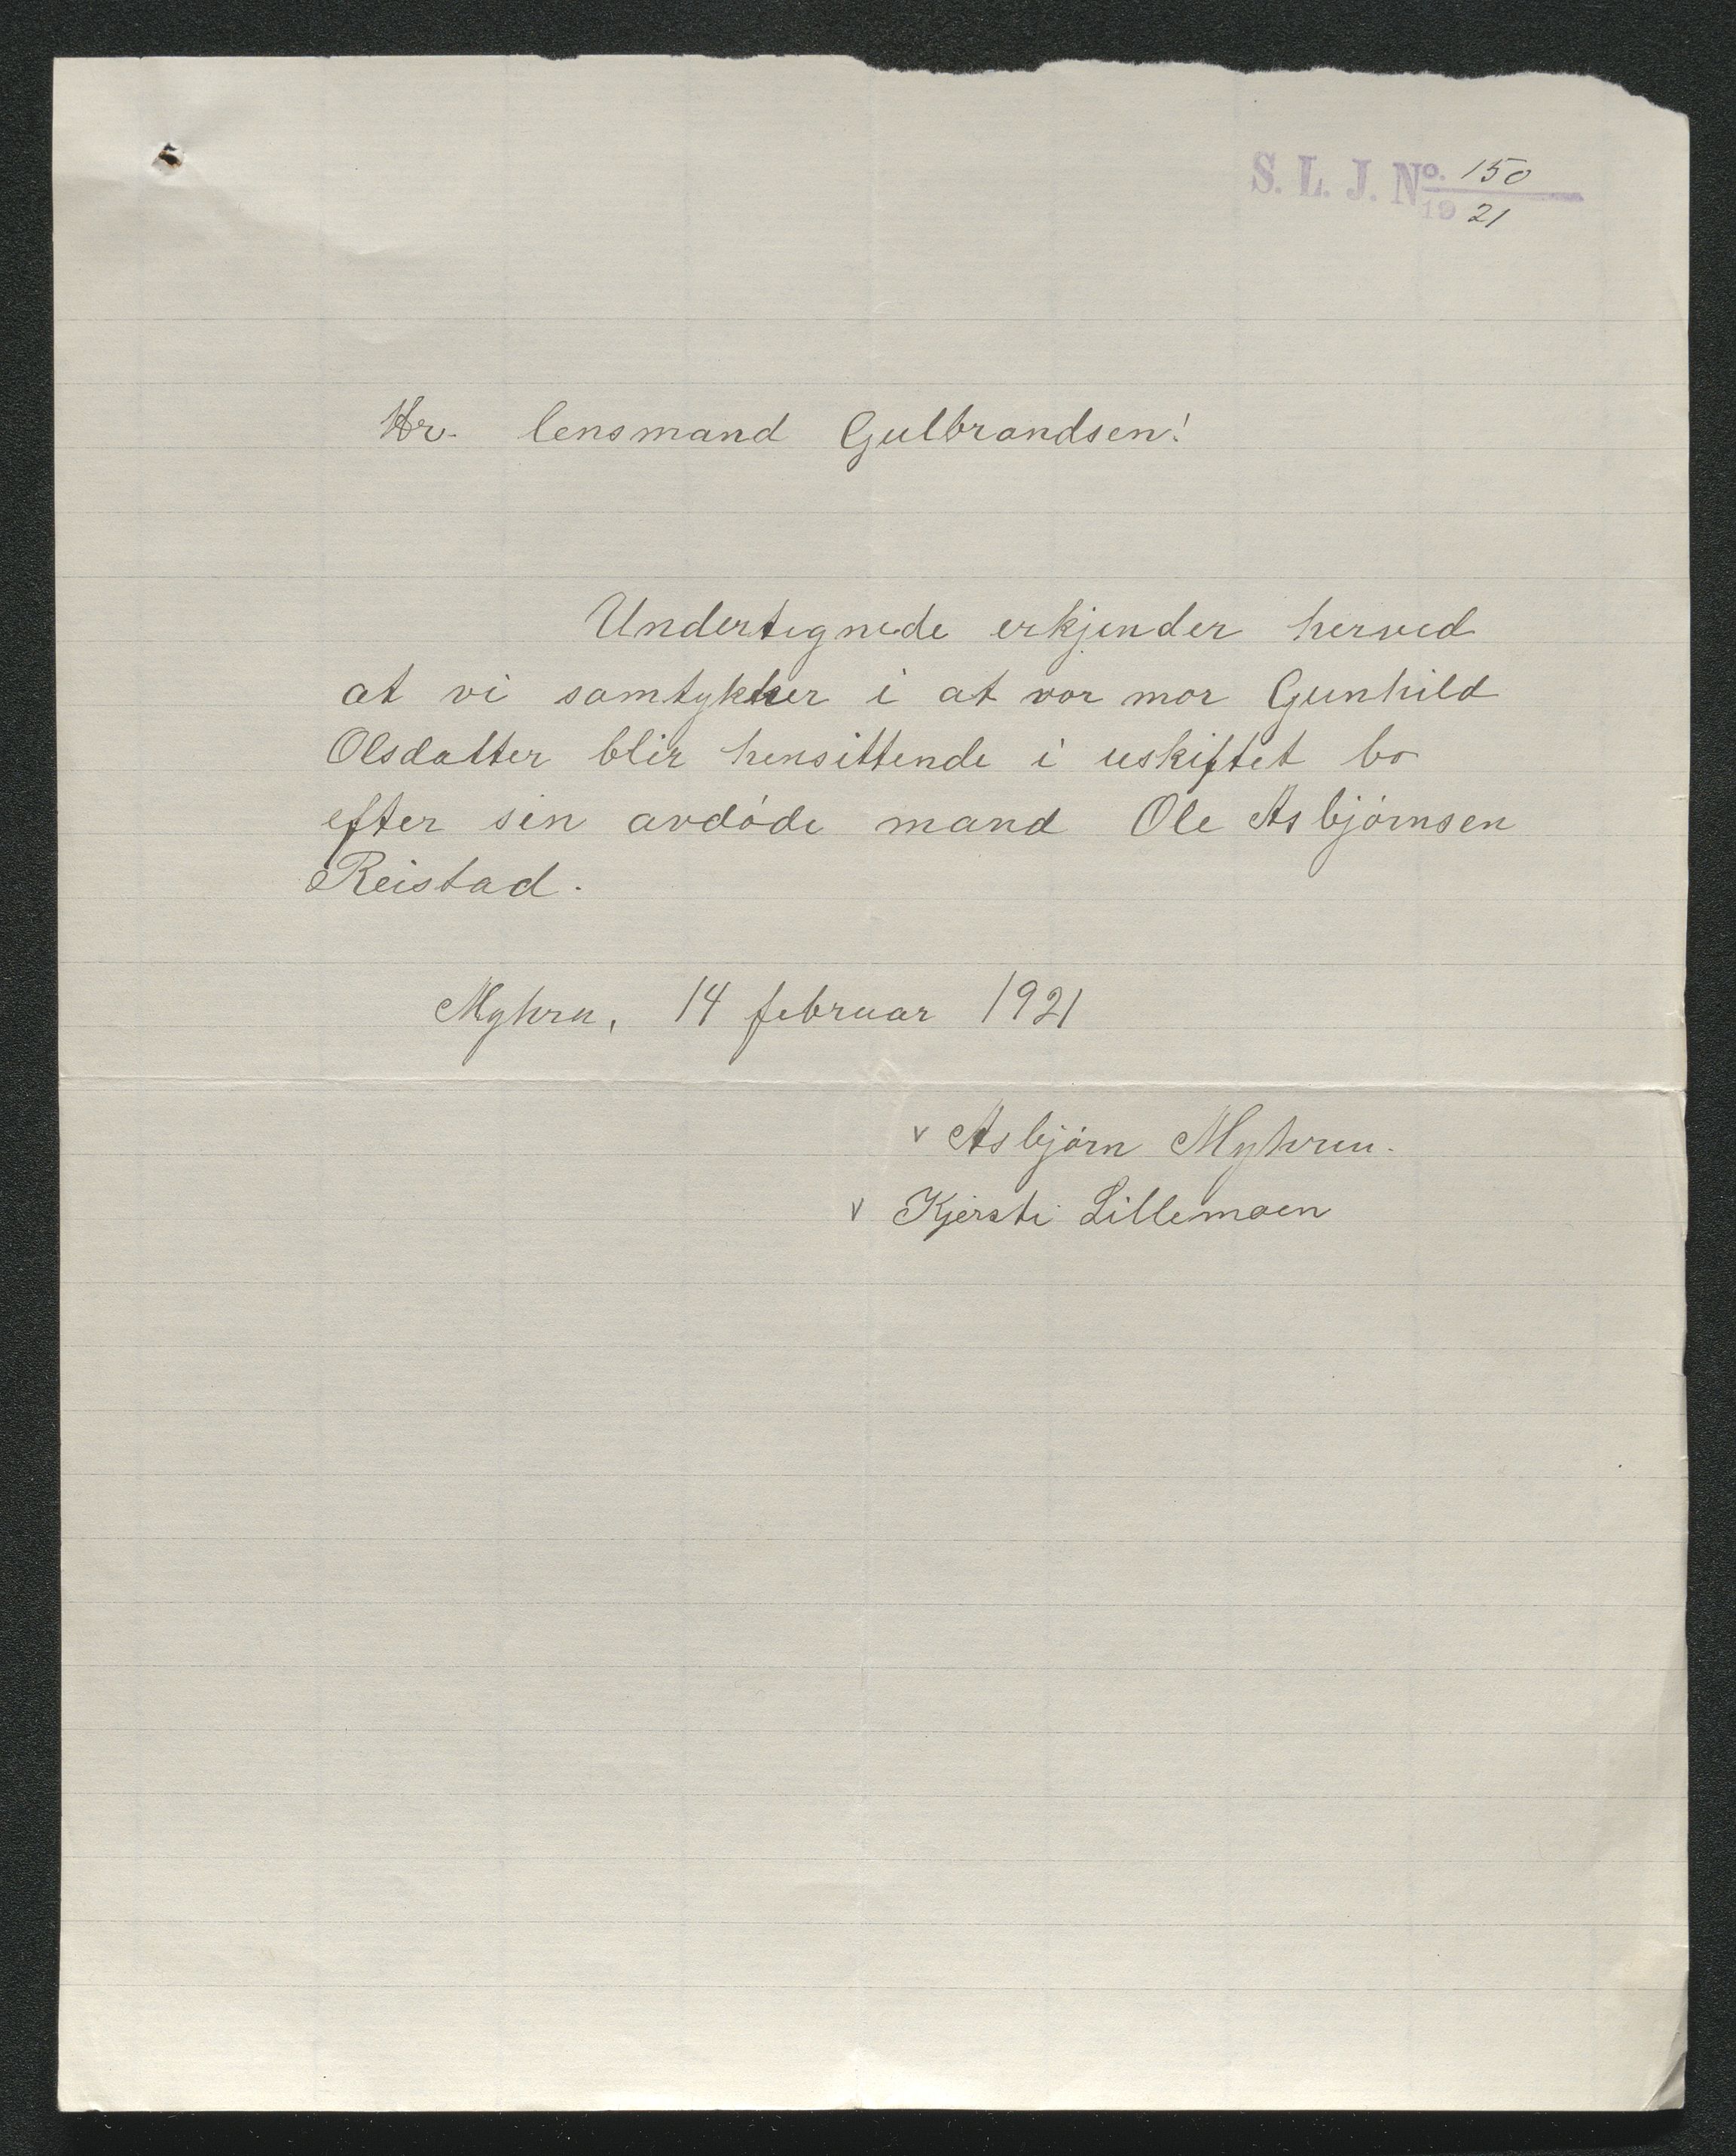 S. L. J. No. 150
19 21
Hr. lensmand Gulbrandsen!
Undertegnede erkjender herved
at vi samtykker i at vor mor Gunhild
Olsdatter blir hensittende i uskiftet bo
efter sin avdöde mand Ole Asbjörnsen
Reistad.
Myhre, 14 februar 1921
v Asbjörn Myhren.
v Kjersti Lillemoen